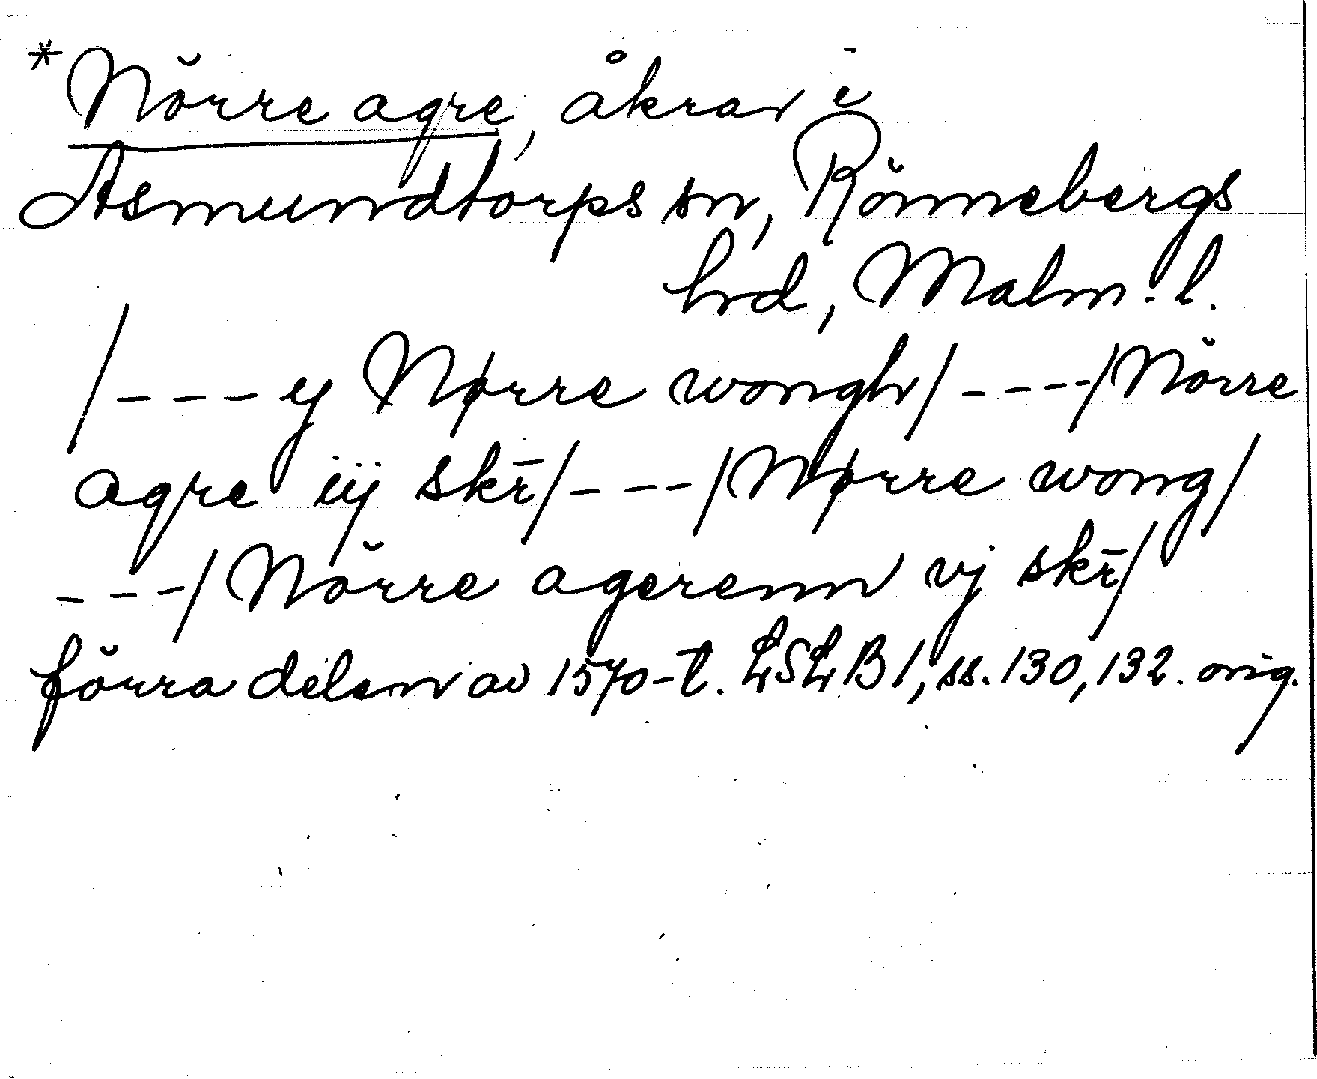 *Nörre agre, åkrar i
Asmundtorps sn, Rönnebergs
hrd, Malm. l.
/---y Nørre wongh/ ---/Nörre
agre iij skr̄/---/Nørre wong/
---/Nörre agerenn vj skr̄/
förra delen av 1570-t. LSLB1, ss. 130, 132. orig.